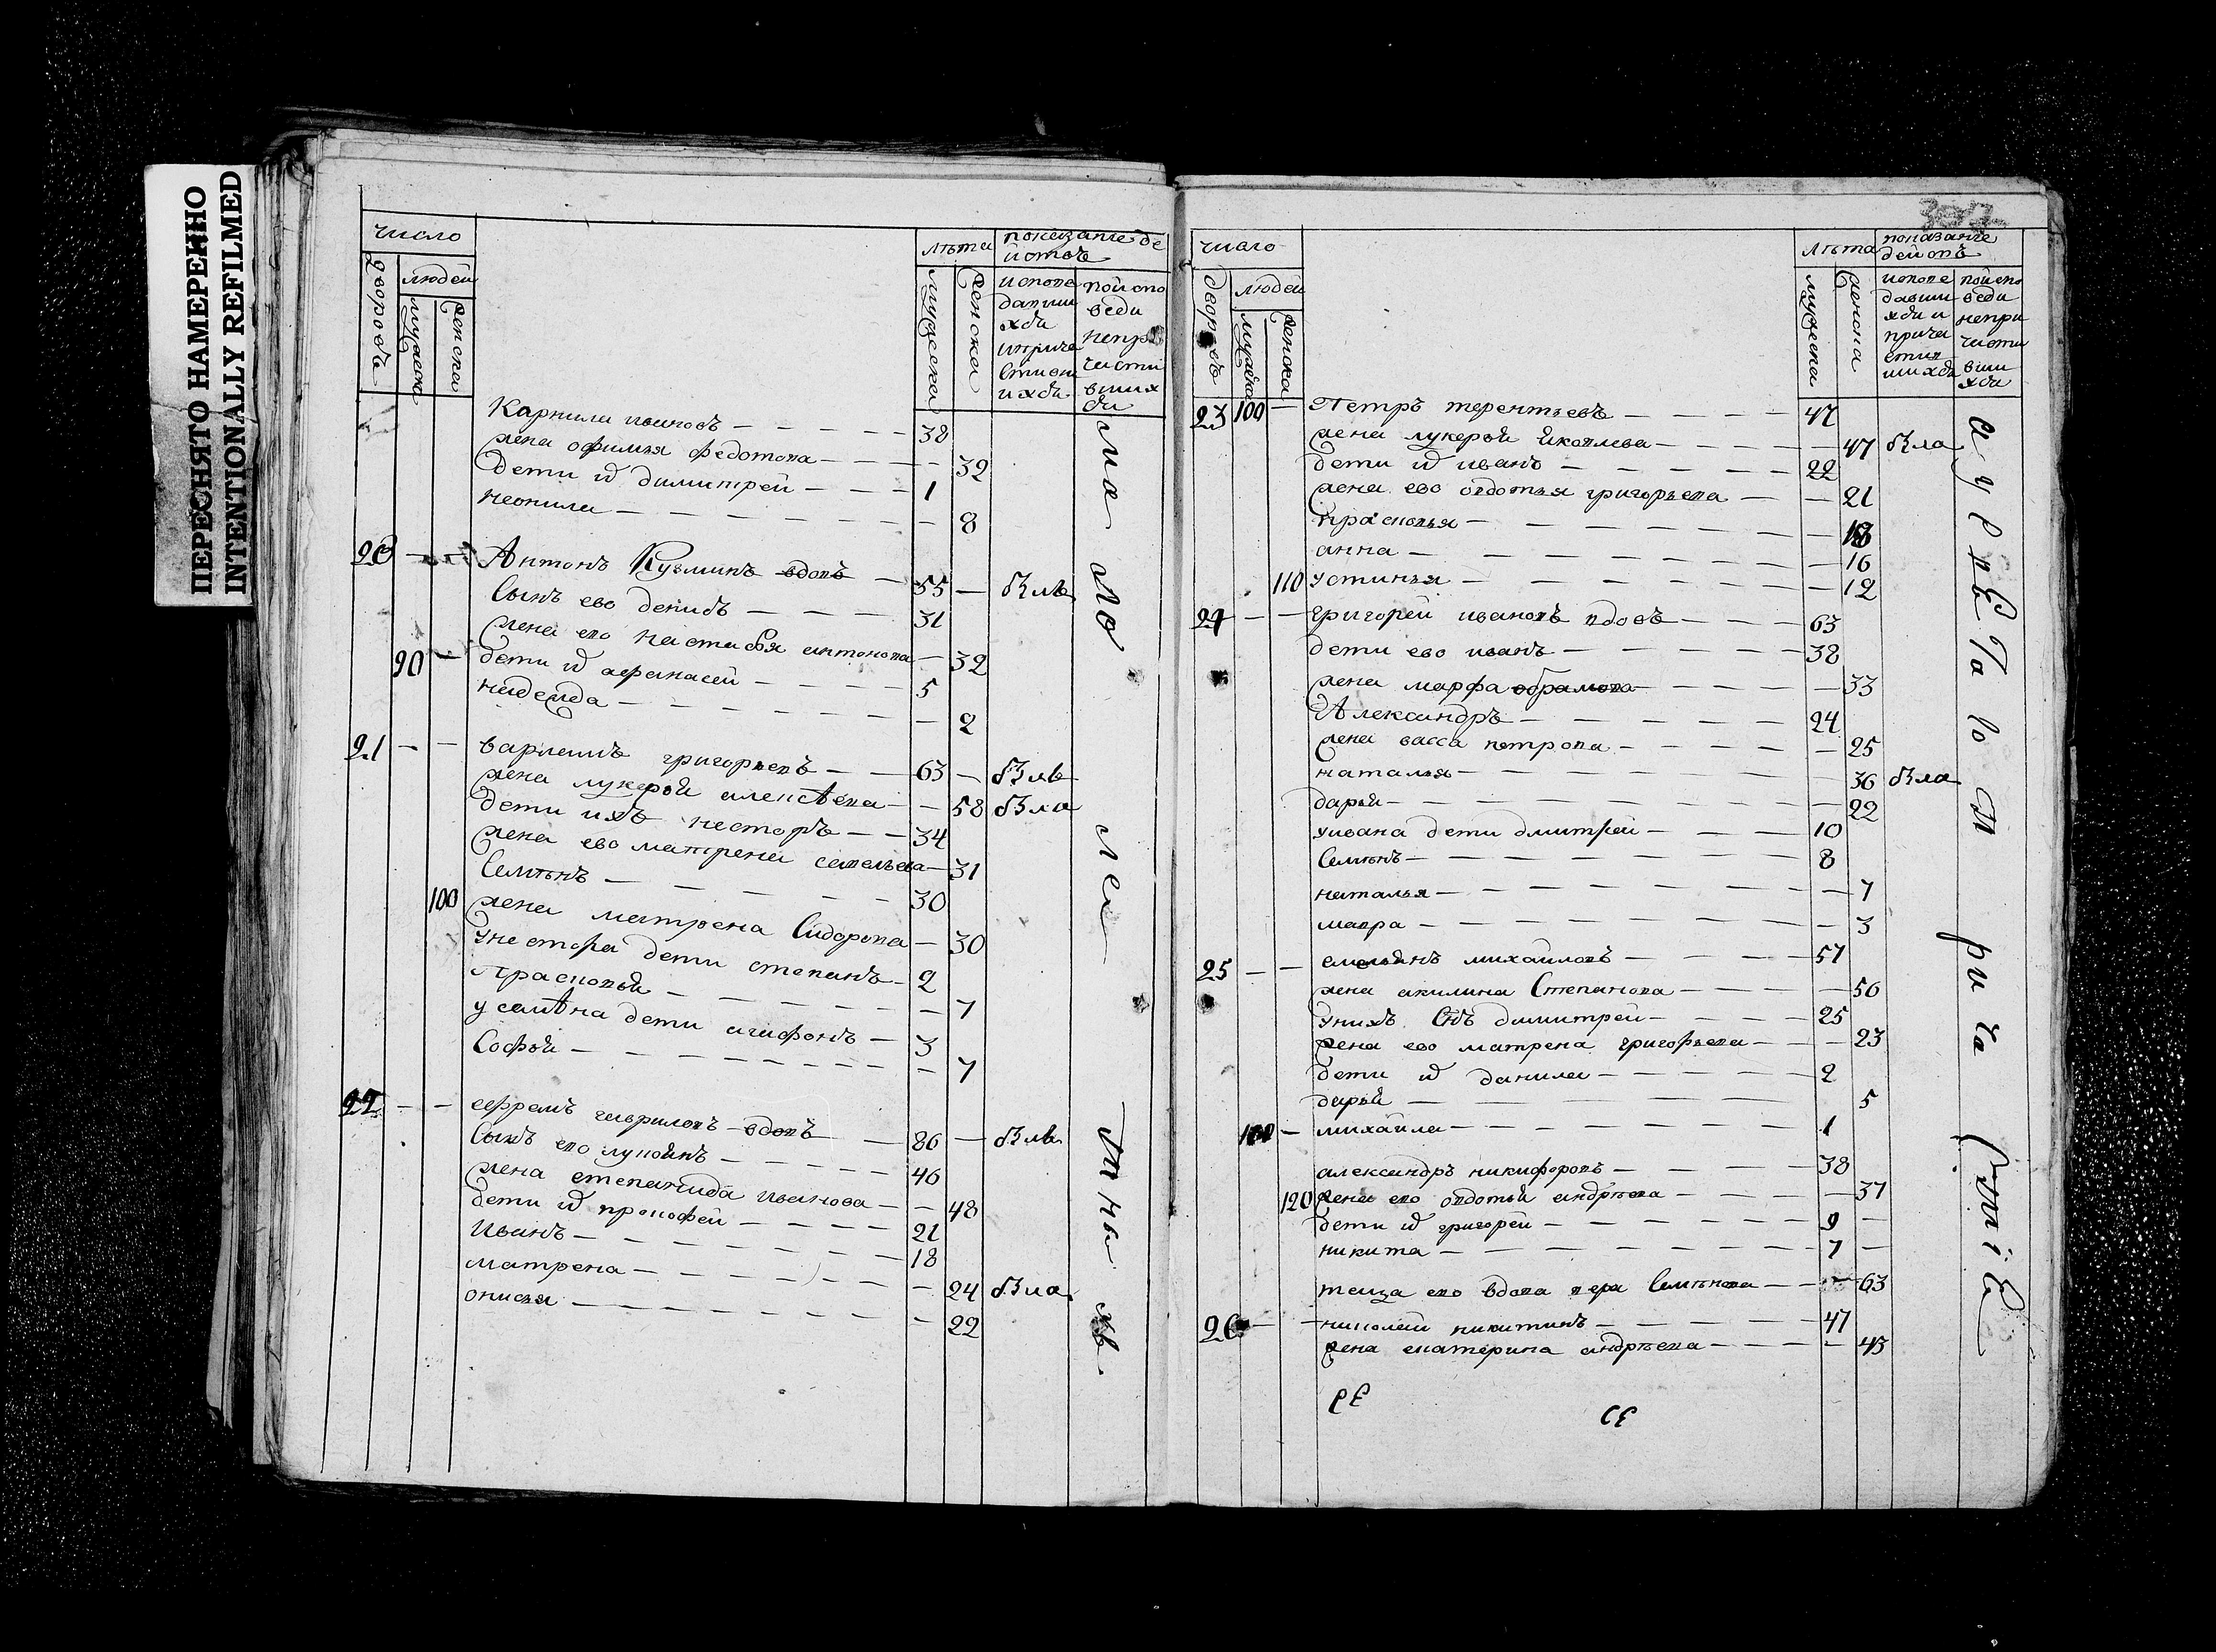 ПЕРЕСНЯТО НАМЕРЕННО
INTENTIONALLY REFILMED
число
дворовъ
людей
мужеска
женска
лѣта
мужеска
женска
показание де
йствъ
исповѣ
давши
хся
и прича
стивш
ихся
по испо
веди
непри
части
вших
ся
Карнила ивановъ 38
жена офимья федотова 32
дети их димитрей 1
неонила 8
20 Антонъ Кузминъ вдовъ 55
Сынъ ево денисъ 31
жена ево настасья антонова 32
90 дети их афанасей 5
надежда 2
21 варламъ григорьевъ 63
жена лукерья алексѣева 58
дети ихъ несторъ 34
жена ево матрена савельева 31
Семѣнъ 30
100 жена матрена Сидорова 30
у нестора дети степанъ 2
Прасковья 7
у семѣна дети агафонъ 3
Софья 7
22 ефремъ гавриловъ вдовъ 86
Сынъ ево лукоянъ 46
жена степанида иванова 48
дети их прокофей 21
Иванъ 18
матрена 24
онисья 22
число
дворовъ
людей
мужеска
женска
лѣта
мужеска
женска
показание
действ
исповѣ
давши
хся и
прича
стив
шихся
по испо
веди
непри
части
вши
хся
23 100 Петръ терентьевъ 47
жена лукерья яковлева 47
дети их иванъ 22
жена ево овдотья григорьева 21
прасковья 18
анна 16
110 устинья 12
24 григорей ивановъ вдовъ 63
дети ево иванъ 38
жена марфа 33
Александръ 24
жена васса петрова 25
наталья 36
дарья 22
у ивана дети дмитрей 10
Семѣнъ 8
наталья 7
мавра 3
25 емельянъ михайловъ 57
жена акилина Степанова 56
у нихъ Снъ димитрей 25
жена ево матрена григорьева 23
дети их данила 2
дарья 5
михайла 1
александръ никифоровъ 38
120 жена ево овдотья андрѣева 37
дети их григорей 9
никита 7
теща ево вдова вера Семѣнова 63
26 николай никитинъ 47
жена екатерина андрѣева 43